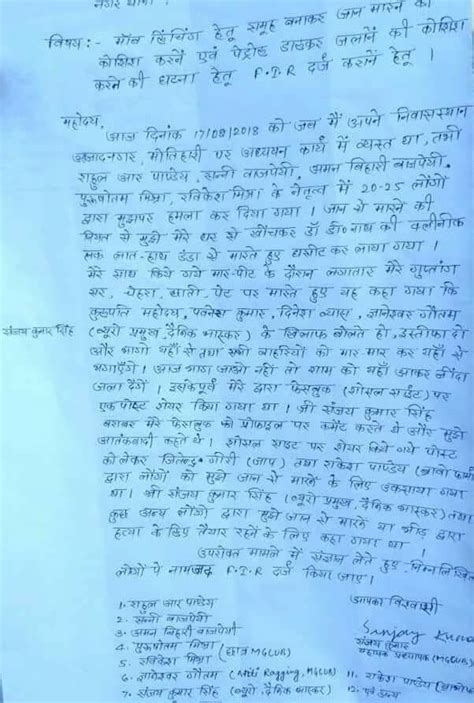 नगर थाना
विषय:- मॉब लिंचिंग हेतु समूह बनाकर जान मारने की
कोशिश करने एवं पेट्रोल डालकर जलाने की कोशिश
करने की घटना हेतु F.I.R दर्ज कराने हेतु ।
महोदय,
आज दिनांक 17/08/2018 को जब मैं अपने निवासस्थान
आजादनगर, मोतिहारी पर अध्ययन कार्य में व्यस्त था, तभी
राहुल आर पाण्डेय, सन्नी वाजपेयी, अमन बिहारी वाजपेयी,
पुरूषोतम मिश्रा, रविकेश मिश्रा के नेतृत्व में 20-25 लोगों
द्वारा मुझपर हमला कर दिया गया । जान से मारने की
नियत से मुझे मेरे घर से खींचकर डॉ डी० नाथ की क्लीनीक
तक लात-हाथ डंडा से मारते हुए घसीट कर लाया गया ।
मेरे साथ किये गये मार-पीट के दौरान लगातार मेरे गुप्तांग
सर, चेहरा, छाती, पेट पर मारते हुए यह कहा गया कि
कुलपति महोदय, पवनेश कुमार, दिनेश व्यास, ज्ञानेश्वर गौतम
संजय कुमार सिंह (ब्यूरो प्रमुख, दैनिक भास्कर) के खिलाफ बोलते हो, इस्तीफा दो
और भागो यहाँ से तथा सभी बाहरियों को मार-मार कर यहाँ से
भगाएँगे । आज भाग जाओ नहीं तो शाम को यहाँ आकर जींदा
जला देंगे । इसके पूर्व मेरे द्वारा फेसबुक (सोशल साईट) पर
एक पोस्ट शेयर किया गया था । श्री संजय कुमार सिंह
बराबर मेरे फेसबुक की प्रोफाइल पर कमेंट करते थे और मुझे
आतंकवादी कहते थे । सोशल साइट पर शेयर किये गये पोस्ट
को लेकर जितेन्द्र गीरी (जाप) तथा राकेश पाण्डेय
द्वारा लोगों को मुझे जान से मारने के लिए उकसाया गया
था । श्री संजय कुमार सिंह (ब्यूरो प्रमुख, दैनिक भास्कर) तथा
कुछ अन्य लोगों द्वारा मुझे जान से मारने या भीड़ द्वारा
हत्या के लिए तैयार रहने के लिए कहा गया था ।
उपरोक्त मामले में संज्ञान लेते हुए निम्नलिखित
लोगों पे नामजद F.I.R दर्ज किया जाए ।
1. राहुल आर पाण्डेय
2. सन्नी वाजपेयी
3. अमन बिहारी वाजपेयी
4. पुरूषोतम मिश्रा
5. रविकेश मिश्रा (छात्र MGCUB)
6. ज्ञानेश्वर गौतम (Anti Ragging, MGCUB)
7. संजय कुमार सिंह (ब्यूरो, दैनिक भास्कर)
आपका विश्वासी
Sanjay Kumar
संजय कुमार
सहायक प्राध्यापक (MGCUB)
11. राकेश पाण्डेय
12. एवं अन्य